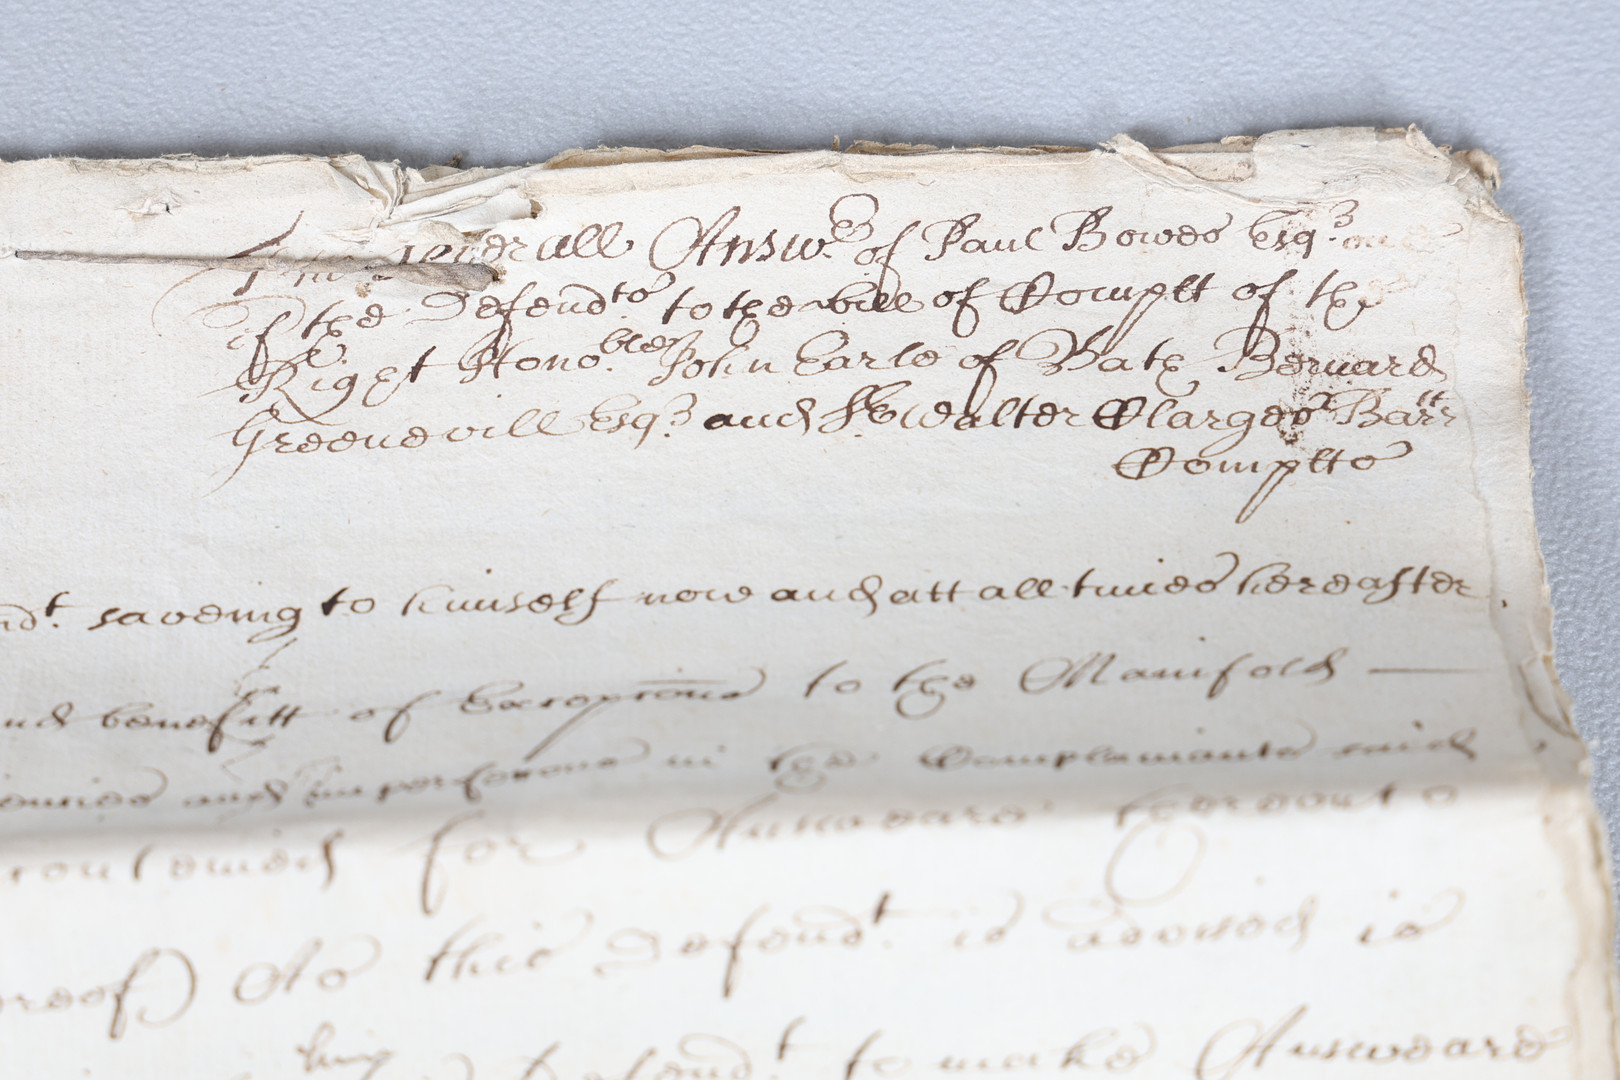 The severall Answ.r of Paul Bowes Esq.r one
of the Defend.ts to the bill of Complt of the
Right Hono.bles John Earle of Bath Bernard
Greenevill Esq.r and Sr Walter Clarges Barrtt
Complts
nd.t saveing to himselfe now and att all times hereafter
nd benefitt of Excepcons to the Manifold
and imperfeccons in the Complainants said
contained for Answeare thereunto
reof) As this Defend.t is advised is
hing Defend.t to make Answeare